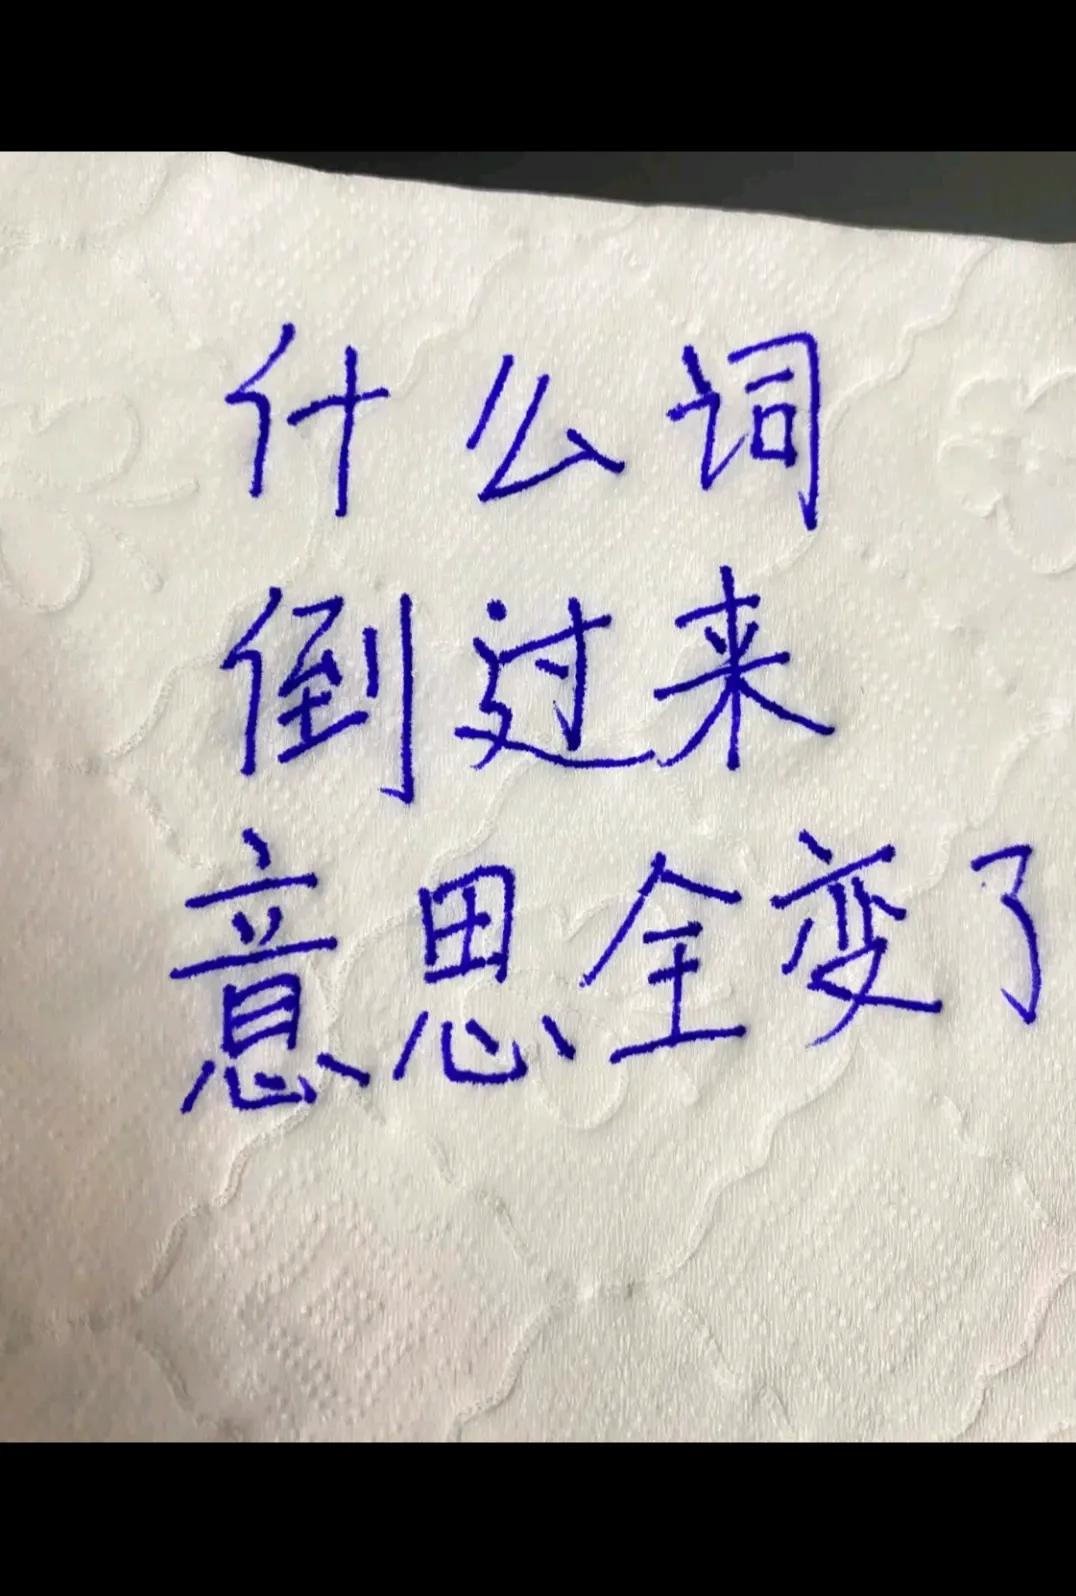 什么词
倒过来
意思全变了